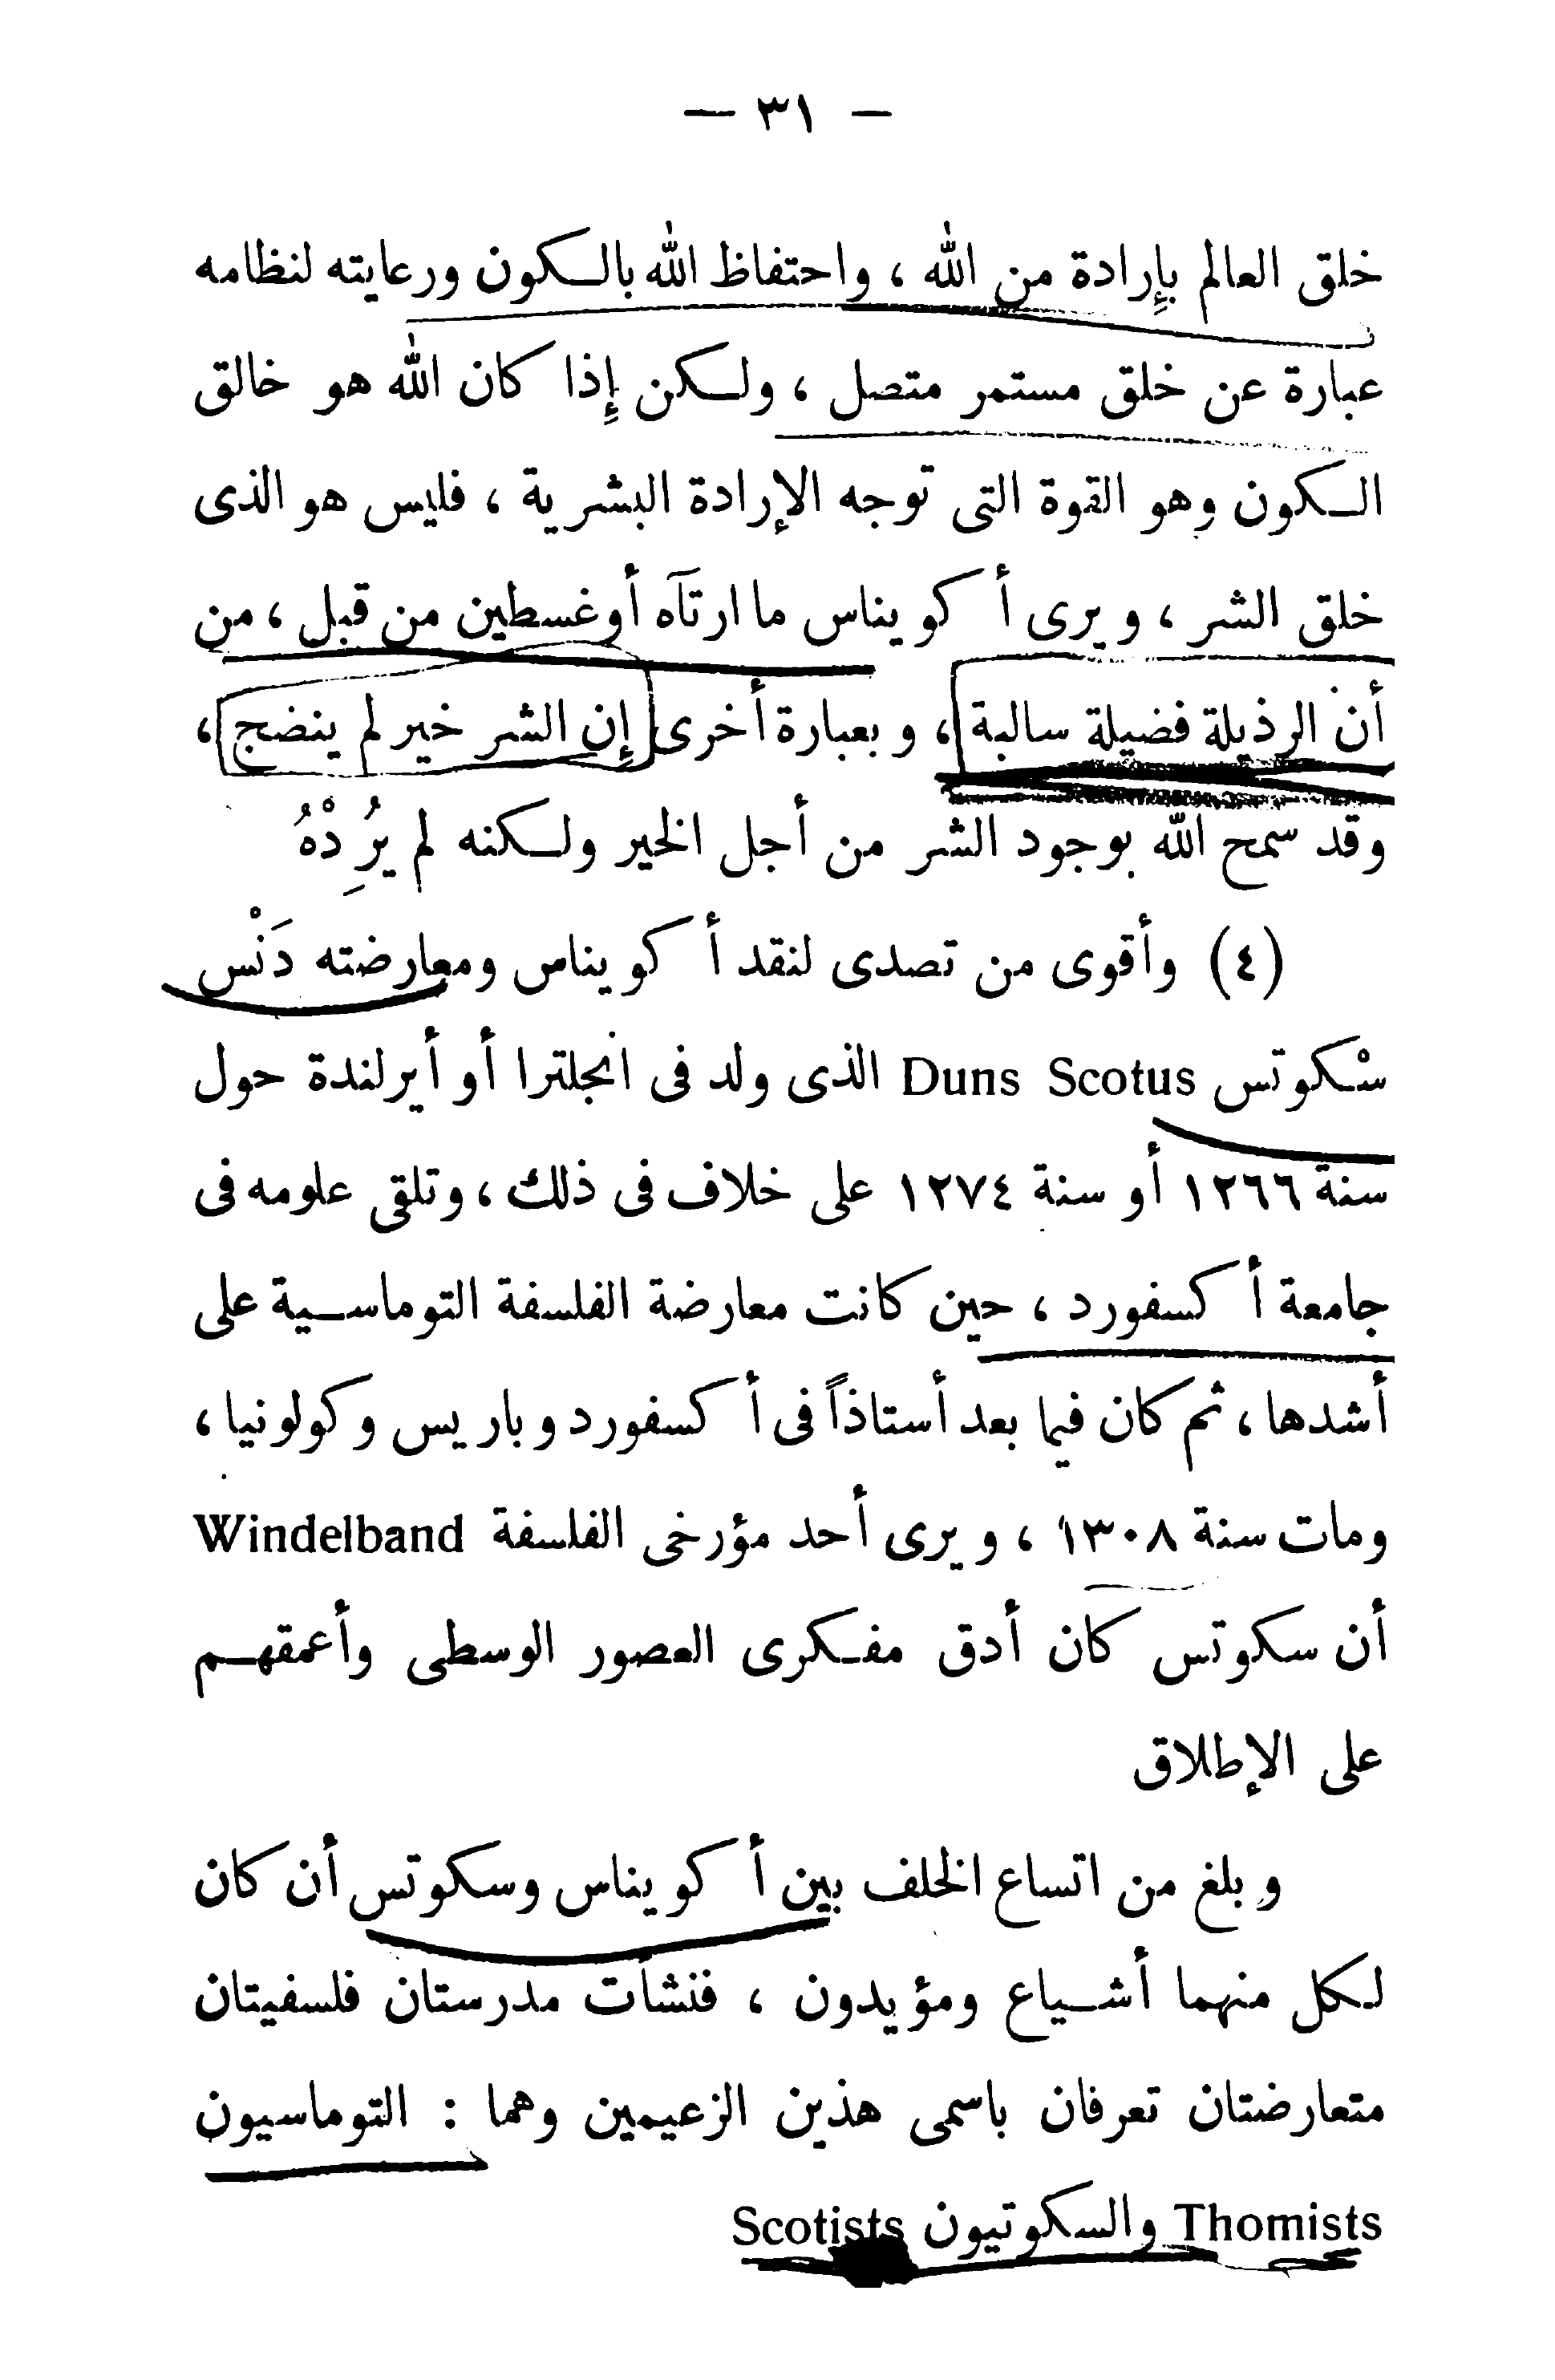 — ٣١ —
خلق العالم بإرادة من الله ، واحتفاظ الله بالكون ورعايته لنظامه
عبارة عن خلق مستمر متصل ، ولكن إذا كان الله هو خالق
الكون وهو القوة التى توجه الإرادة البشرية ، فليس هو الذى
خلق الشر ، ويرى أكويناس ما ارتآه أوغسطين من قبل ، من
أن الرذيلة فضيلة سالبة ، وبعبارة أخرى إن الشر خير لم ينضج ،
وقد سمح الله بوجود الشر من أجل الخير ولكنه لم يُرِدْهُ
(٤) وأقوى من تصدى لنقد أكويناس ومعارضته دَنْس
سْكوتس Duns Scotus الذى ولد فى انجلترا أو أيرلندة حول
سنة ١٢٦٦ أو سنة ١٢٧٤ على خلاف فى ذلك ، وتلقى علومه فى
جامعة أكسفورد ، حين كانت معارضة الفلسفة التوماسية على
أشدها ، ثم كان فيما بعد أستاذاً فى أكسفورد وباريس وكولونيا ،
ومات سنة ١٣٠٨ ، ويرى أحد مؤرخى الفلسفة Windelband
أن سكوتس كان أدق مفكرى العصور الوسطى وأعمقهم
على الإطلاق
وبلغ من اتساع الخلف بين أكويناس وسكوتس أن كان
لكل منهما أشياع ومؤيدون ، فنشأت مدرستان فلسفيتان
متعارضتان تعرفان باسمى هذين الزعيمين وهما : التوماسيون
Thomists والسكوتيون Scotists